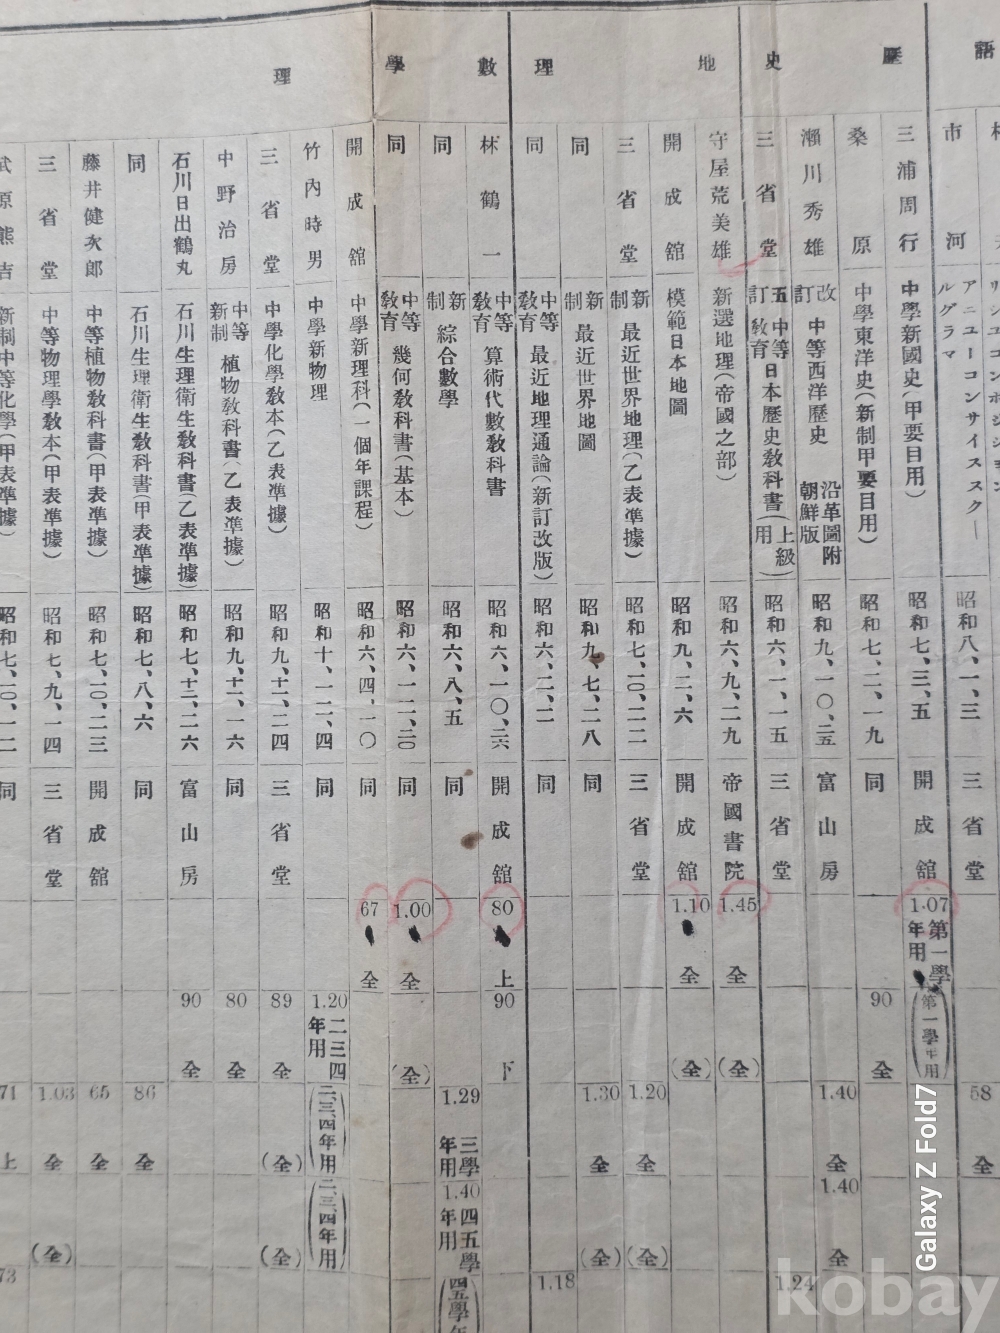 語
歷史
地理
數學
理
三省堂
昭和八、一、三
市河
アニユーコンサイススク―
ルグラマ
58
全
三浦周行
中學新國史(甲要目用)
昭和七、三、五
開成舘
1.07
第一學
年用
(第一學年用)
桑原
中學東洋史(新制甲要目用)
昭和七、二、一九
同
90
全
瀨川秀雄
改訂
中等西洋歷史
沿革圖附
朝鮮版
昭和九、一〇、二五
富山房
1.40
全
1.40
全
三省堂
五訂
中等教育
日本歷史敎科書(上級用)
昭和六、一、一五
三省堂
1.24
守屋荒美雄
新選地理(帝國之部)
昭和六、九、二九
帝國書院
1.45
全
(全)
開成舘
模範日本地圖
昭和九、二、六
開成舘
1.10
全
(全)
三省堂
新制
最近世界地理(乙表準據)
昭和七、一〇、二二
三省堂
1.20
全
(全)
同
新制
最近世界地圖
昭和九、七、二八
同
1.30
全
(全)
同
中等敎育
最近地理通論(新訂改版)
昭和六、二、二
同
1.18
林鶴一
中等敎育
算術代數敎科書
昭和六、一〇、二六
開成舘
80
上
90
下
同
新制
綜合數學
昭和六、八、五
同
1.29
三學
年用
1.40
四五學
年用
同
中等敎育
幾何敎科書(基本)
昭和六、一二、二〇
同
1.00
全
(全)
開成舘
中學新理科(一個年課程)
昭和六、四、一〇
同
67
全
竹內時男
中學新物理
昭和十、一二、四
同
1.20
二三四
年用
(二、三、四年用)
(二、三、四年用)
三省堂
中學化學敎本(乙表準據)
昭和九、十二、二四
三省堂
89
全
(全)
(全)
中野治房
中等新制
植物敎科書(乙表準據)
昭和九、十二、一六
同
80
全
石川日出鶴丸
石川生理衛生敎科書(乙表準據)
昭和七、十二、二六
富山房
90
全
同
石川生理衛生敎科書(甲表準據)
昭和七、八、六
同
86
全
藤井健次郎
中等植物敎科書(甲表準據)
昭和七、一〇、二三
開成舘
65
全
三省堂
中等物理學敎本(甲表準據)
昭和七、九、一四
三省堂
1.03
全
(全)
武原熊吉
新制中等化學(甲表準據)
昭和七、一〇、一二
同
71
上
73
Galaxy Z Fold7
kobay